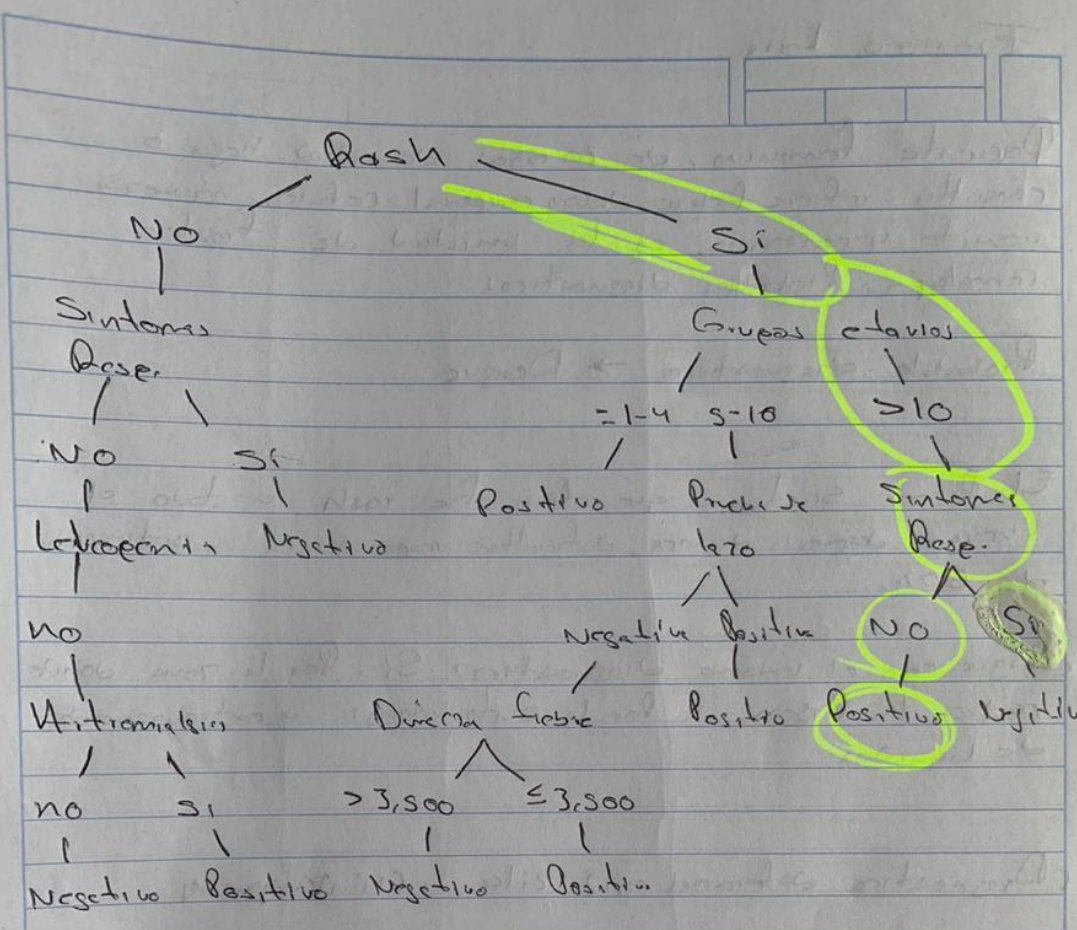 Rash
NO Si
Sintomas Grupos etarios
Resp.
=1-4 5-10 >10
NO Si
Positivo Prueba de Sintomas
Leucopenia Negativo lazo Resp.
no Negativa Positiva NO Si
Artromialgias Duración fiebre Positivo Positivo Negativo
no si >3,500 ≤3,500
Negativo Positivo Negativo Positivo